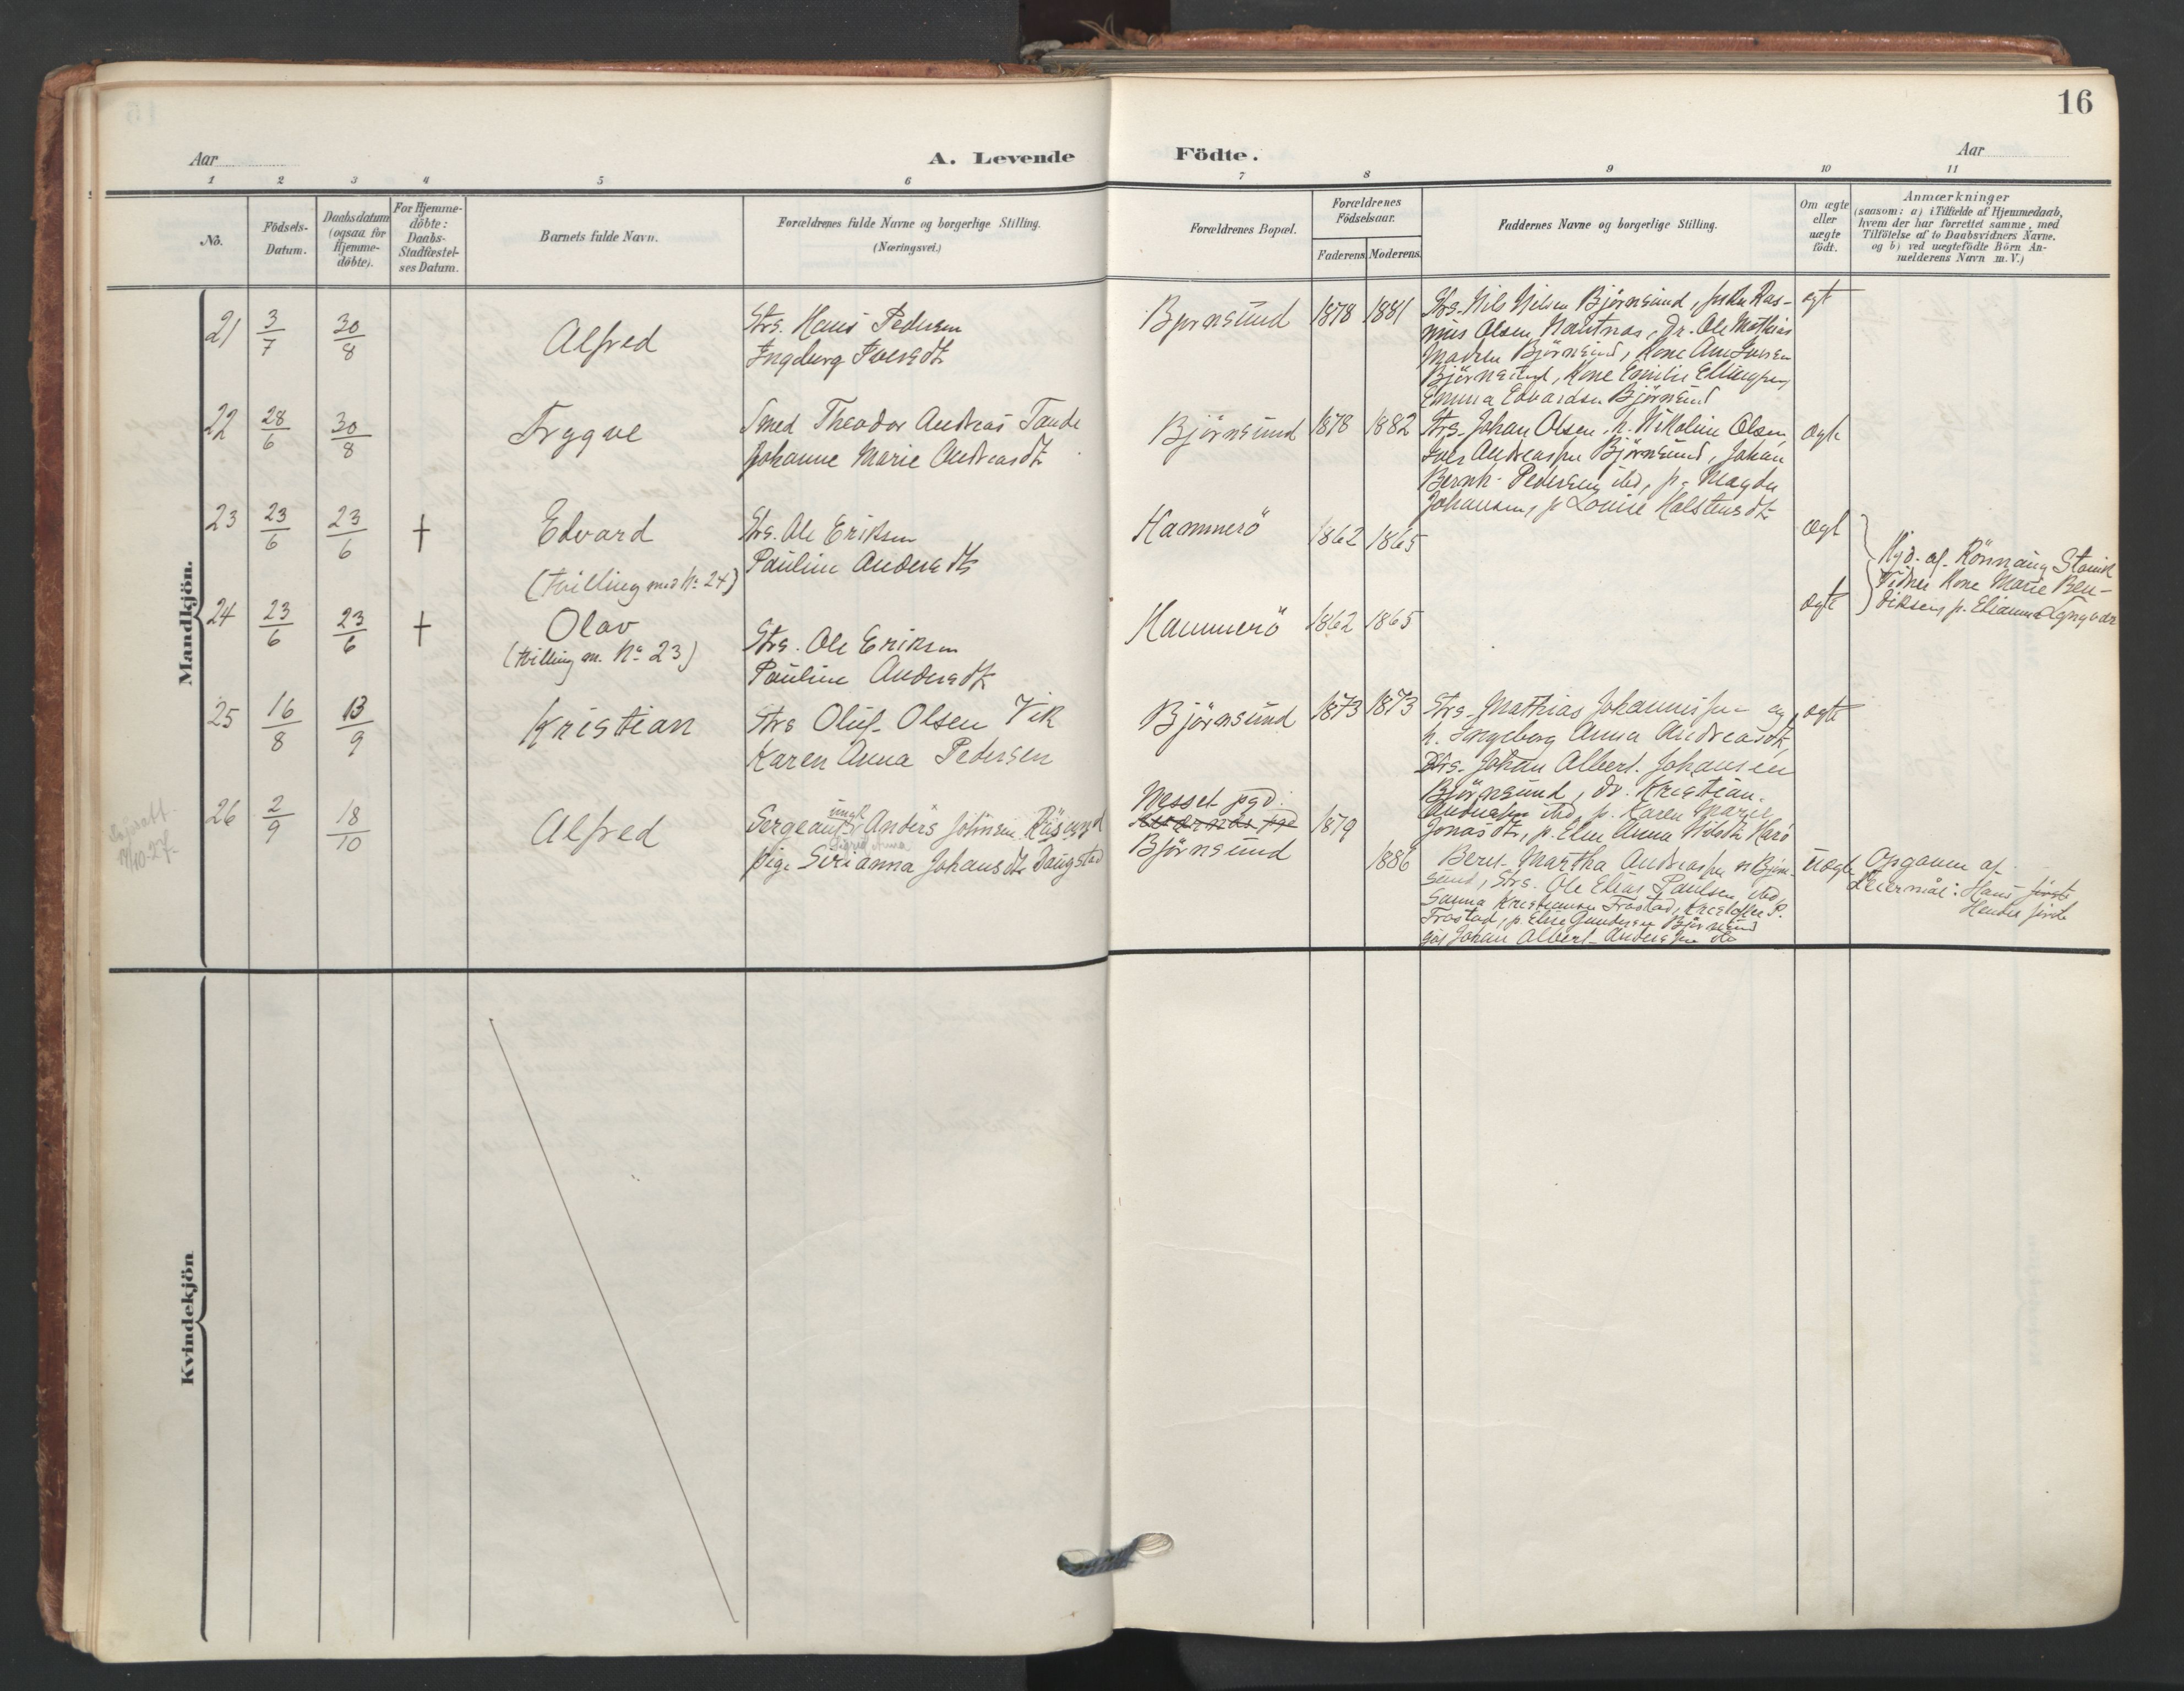 16
Aar
A. Levende Födte.
Aar
1 2 3 4 5 6 7 8 9 10 11
No.
Födsels-
Datum.
Daabsdatum
(ogsaa for
Hjemme-
döbte).
For Hjemme-
döbte:
Daabs-
Stadfæstel-
ses Datum.
Barnets fulde Navn.
Forældrenes fulde Navne og borgerlige Stilling.
(Næringsvei.)
Forældrenes Bopæl.
Forældrenes
Födselsaar.
Faderens. Moderens.
Faddernes Navne og borgerlige Stilling.
Om ægte
eller
uægte
födt.
Anmærkninger
(saasom: a) i Tilfælde af Hjemmedaab,
hvem der har forrettet samme, med
Tilfötelse af to Daabsvidners Navne.
og b) ved uægtefödte Börn An-
melderens Navn m. V.)
Mandkjön.
21 3/7 30/8 Alfred
Strs. Hans Pedersen
Ingeborg Iversdtr
Bjornsund 1878 1881
Strs. Nils Nilsen Björnsund, Ras-
mus Olsen, Dr. Ole Mathias
Madsen Björnsund, Kone Ane Iversen
Björnsund, Kone Emilie Ellingsen,
Emma Edvardsen Björnsund
ægte
22 28/6 30/8 Trygve
Smed Theodor Andreas Tande
Johanne Marie Andreasdtr
Björnsund 1878 1882
Strs. Johan Olsen, h. Nikoline Olsen,
Iver Andreassen Björnsund, Johan
Bernh. Pedersen ibd, p. Magda
Johansen, p Louise Halstensdtr
ægte
23 23/6 23/6 † Edvard
(tvilling med No 24)
Strs. Ole Eriksen
Pauline Andersdtr
Hammerö 1862 1865
ægte
24 23/6 23/6 † Olav
(tvilling m. No 23)
Strs. Ole Eriksen
Pauline Andersdtr
Hammerö 1862 1865
ægte
Hjd. af Rönnaug Stavik
Vidner Kone Marie Ben-
diksen, p. Elianne Lyngvær
25 16/8 13/9 Kristian
Strs Oluf Olsen Vik
Karen Anna Pedersen
Björnsund 1873 1873
Strs. Mathias Johannissen og
h. Ingeborg Anna Andreasdtr,
Strs. Johan Albert Johansen
Björnsund, dr. Kristian
Andreassen ibd, p. Karen Marie
Jonasdtr, p. Eline Anna Nilsdtr Harö
ægte
14/10-27-
26 2/9 18/10 Alfred
Sergeant ungk Anders Johnsen Riisund
Sigrid Anna
Pige Serianna Johansdtr Daugstad
Nesset pgd.
Björnsund
1879 1886
Beret Martha Andreassen Björn-
sund, Strs. Ole Elias Paulsen ibd,
Sanna Kristiansen Frostad, Kristoffer P.
Frostad, p. Elise Gundersen Björnsund
Johan Albert Anderssen ibd
uægte
Opgaven af
Leiermål: Hans første
Hendes første
Kvindekjön